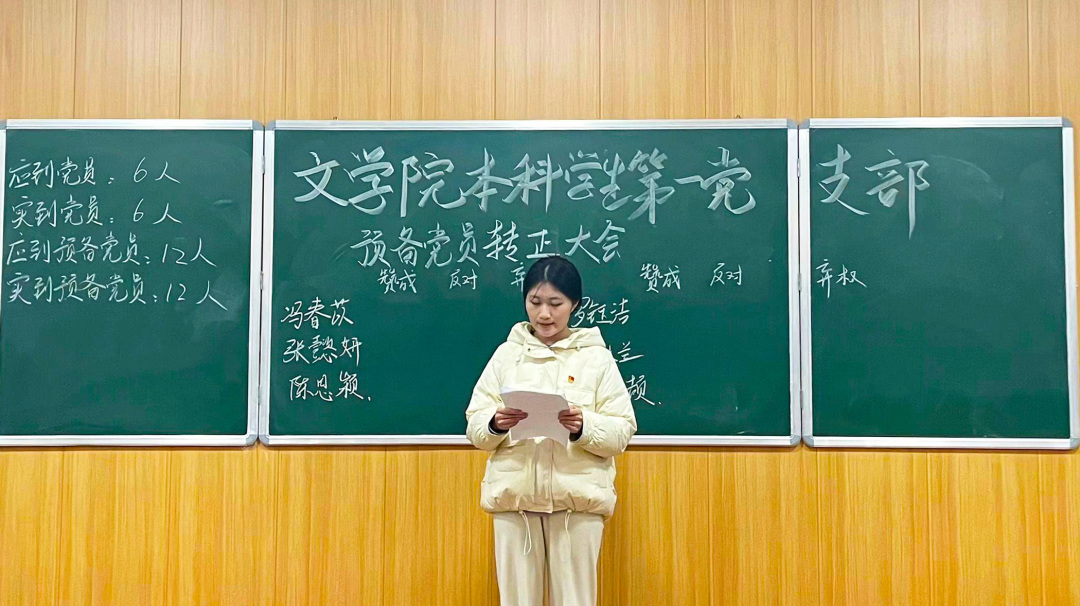 应到党员：6人
实到党员：6人
应到预备党员：12人
实到预备党员：12人
文学院本科学生第一党支部
预备党员转正大会
赞成 反对 弃 赞成 反对 弃权
冯春苡 钰洁
张懿妍
陈思颖. 颉.